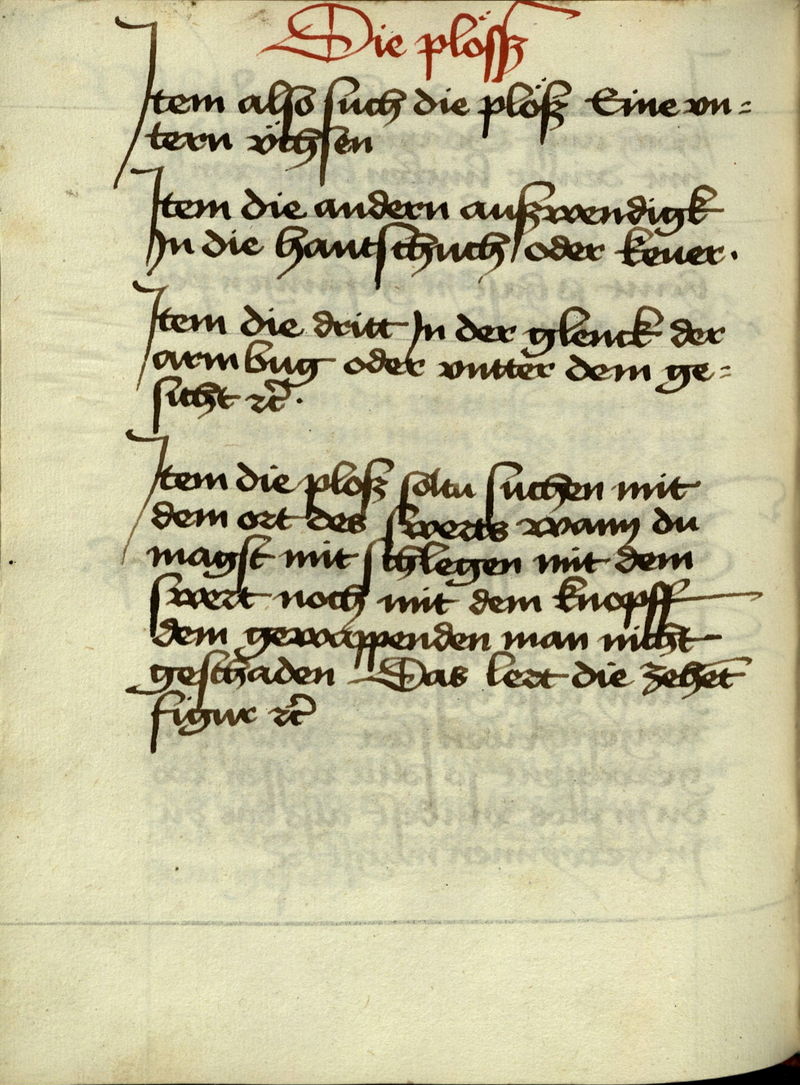 Die plössz
Item also such die plösz Eine vn=
tern vchsen
Item die andern auszwendigk
In die hantschuch oder kener.
Item die dritt In der glenck der
arm bug oder vntter dem ge=
sicht rc̃.
Item die plosz soltu suchen mit
dem ort des swerts wann du
magst mit schlegen mit dem
swert noch mit dem knopff
dem gewappenden man nicht
geschaden Das lert die zehet̃
figur rc̃